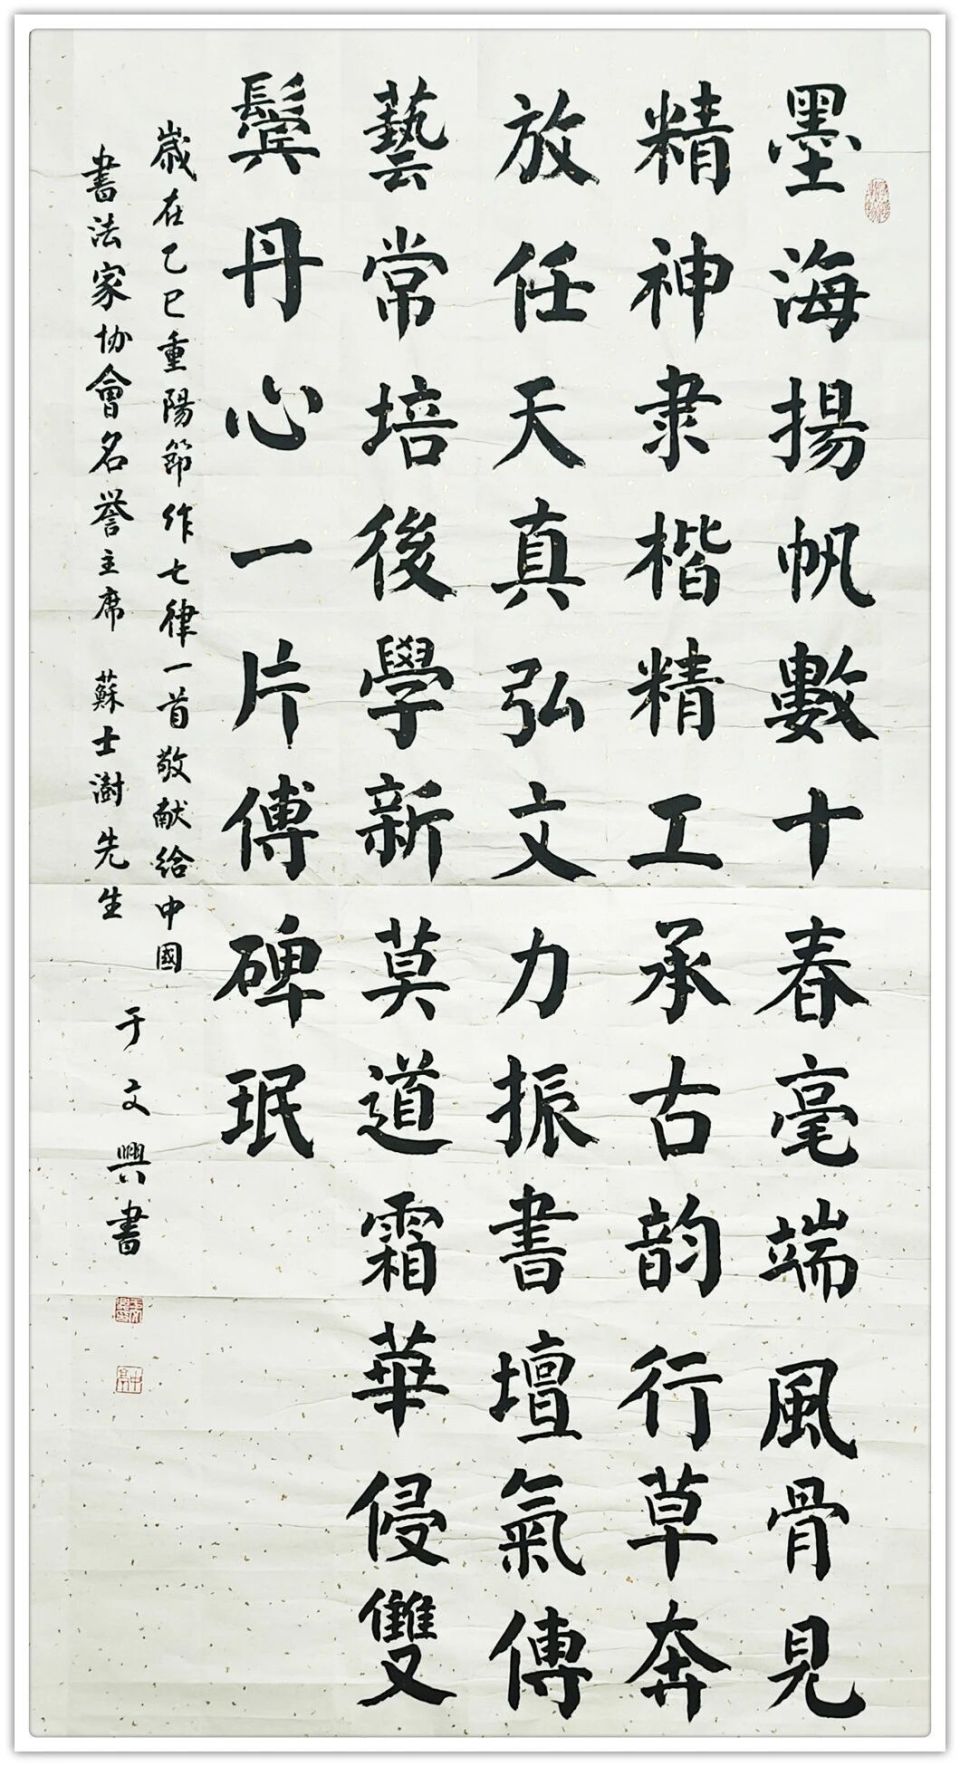 墨海揚帆數十春毫端風骨見
精神隶楷精工承古韵行草奔
放任天真弘文力振書壇氣傳
藝常培後學新莫道霜華侵雙
鬓丹心一片傳碑珉
嵗在乙巳重陽節作七律一首敬献给中國
書法家协會名誉主席 蘇士澍先生
于文興書